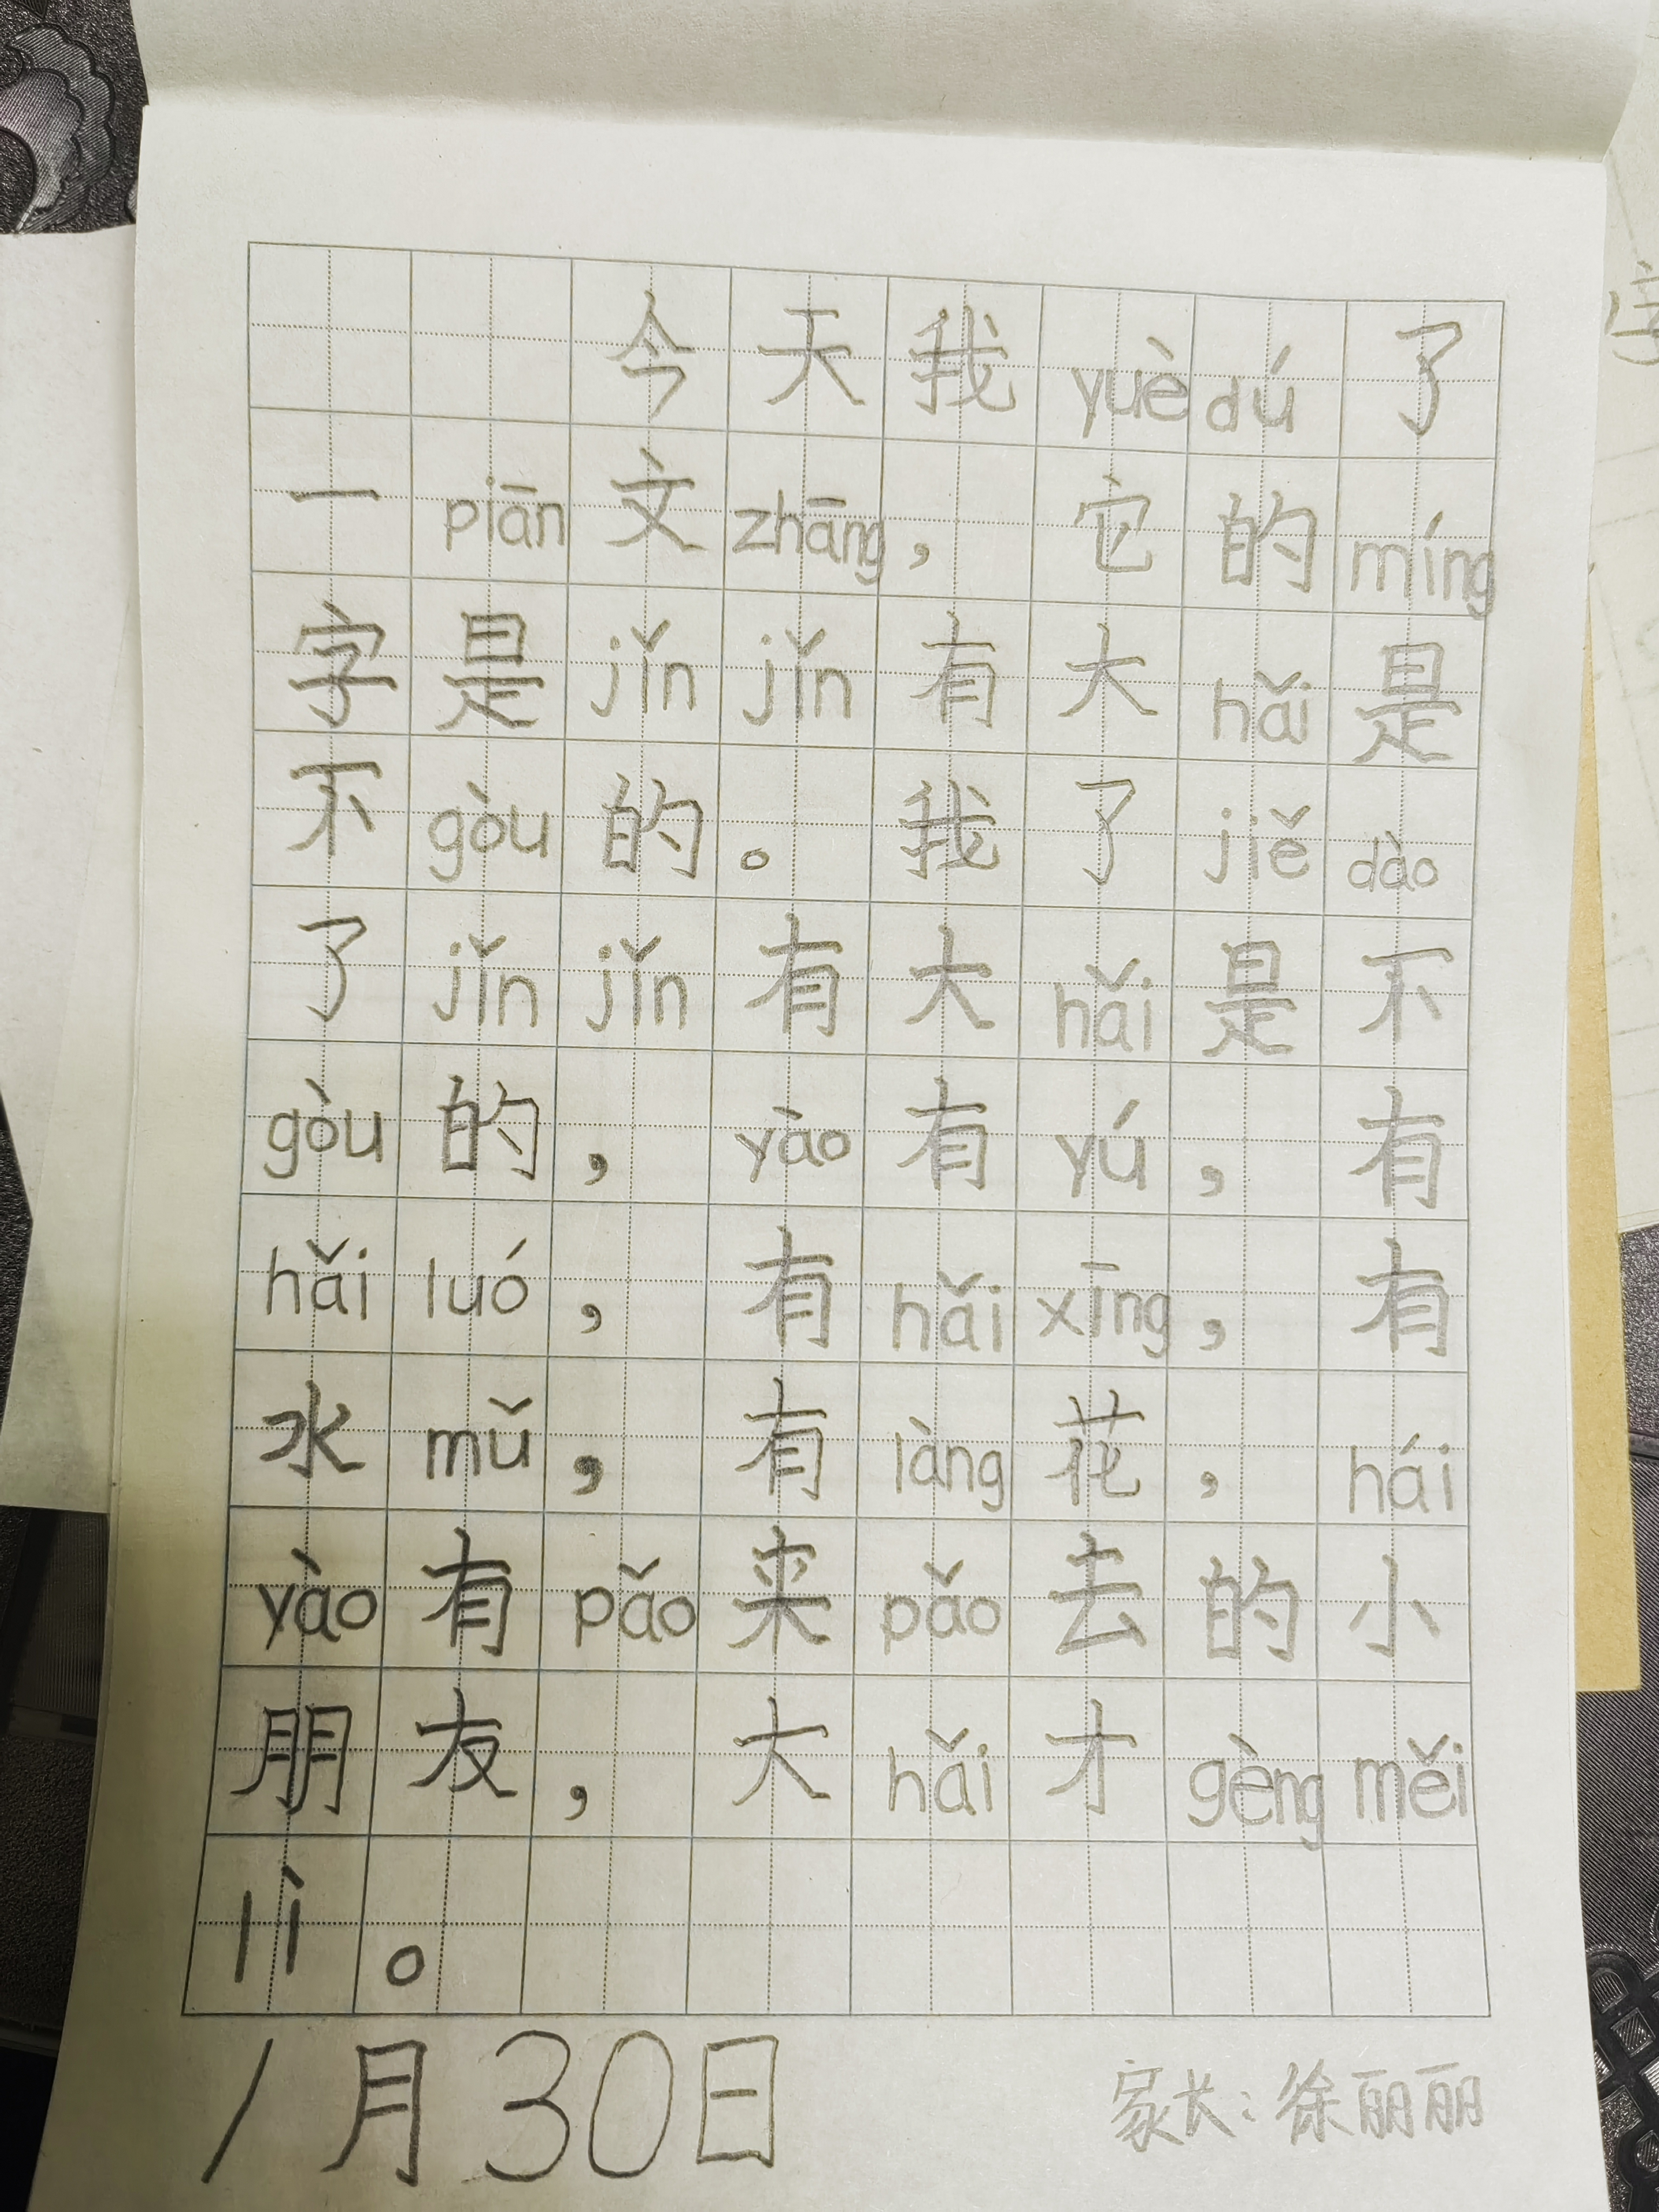 今天我yuèdú了
一piān文zhāng，它的míng
字是jǐnjǐn有大hǎi是
不gòu的。我了jiědào
了jǐnjǐn有大hǎi是不
gòu的，yào有yú，有
hǎiluó，有hǎixīng，有
水mǔ，有làng花，hái
yào有pǎo来pǎo去的小
朋友，大hǎi才gèngměi
lì。
1月30日
家长：徐丽丽